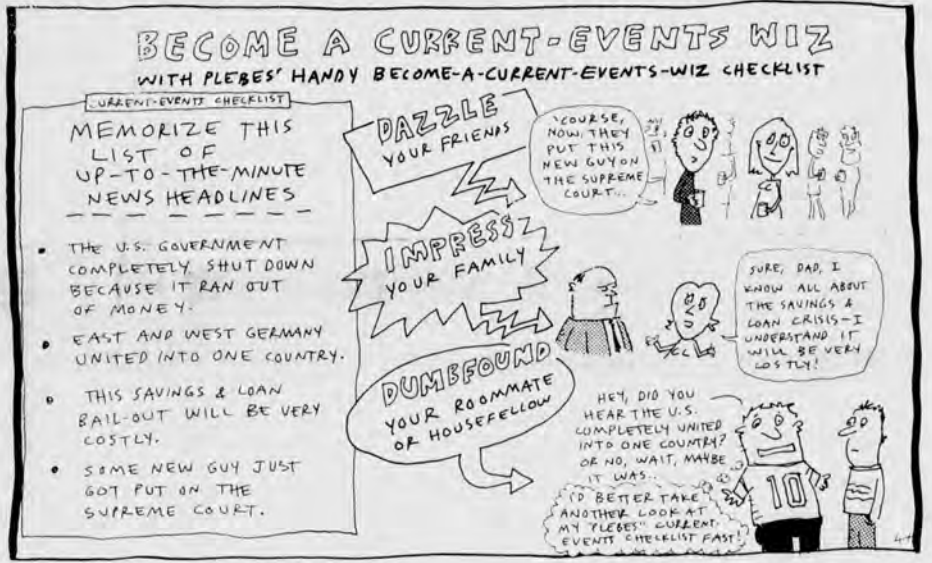 BECOME A CURRENT-EVENTS WIZ
WITH PLEBES' HANDY BECOME-A-CURRENT-EVENTS-WIZ CHECKLIST
CURRENT-EVENTS CHECKLIST
MEMORIZE THIS
LIST OF
UP-TO-THE-MINUTE
NEWS HEADLINES
• THE U.S. GOVERNMENT
COMPLETELY SHUT DOWN
BECAUSE IT RAN OUT
OF MONEY.
• EAST AND WEST GERMANY
UNITED INTO ONE COUNTRY.
• THIS SAVINGS & LOAN
BAIL-OUT WILL BE VERY
COSTLY.
• SOME NEW GUY JUST
GOT PUT ON THE
SUPREME COURT.
DAZZLE
YOUR FRIENDS
'COURSE,
NOW, THEY
PUT THIS
NEW GUY ON
THE SUPREME
COURT...
IMPRESS
YOUR FAMILY
SURE, DAD, I
KNOW ALL ABOUT
THE SAVINGS &
LOAN CRISIS-I
UNDERSTAND IT
WILL BE VERY
COSTLY!
DUMBFOUND
YOUR ROOMMATE
OR HOUSEFELLOW
HEY, DID YOU
HEAR THE U.S.
COMPLETELY UNITED
INTO ONE COUNTRY?
OR NO, WAIT, MAYBE
IT WAS...
I'D BETTER TAKE
ANOTHER LOOK AT
MY "PLEBES" CURRENT-
EVENTS CHECKLIST FAST!
10